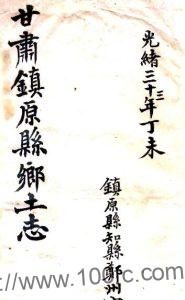 光緒三十三年丁未
鎮原縣知縣鄭州
甘肅鎮原縣鄉土志